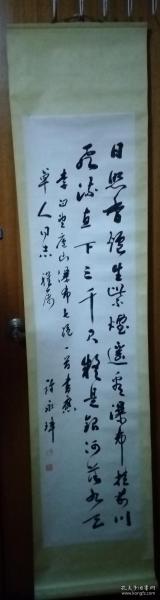 日照香炉生紫烟遥看瀑布挂前川
飞流直下三千尺疑是银河落九天
李白望庐山瀑布七绝一首书应
军人同志雅属
许永璋